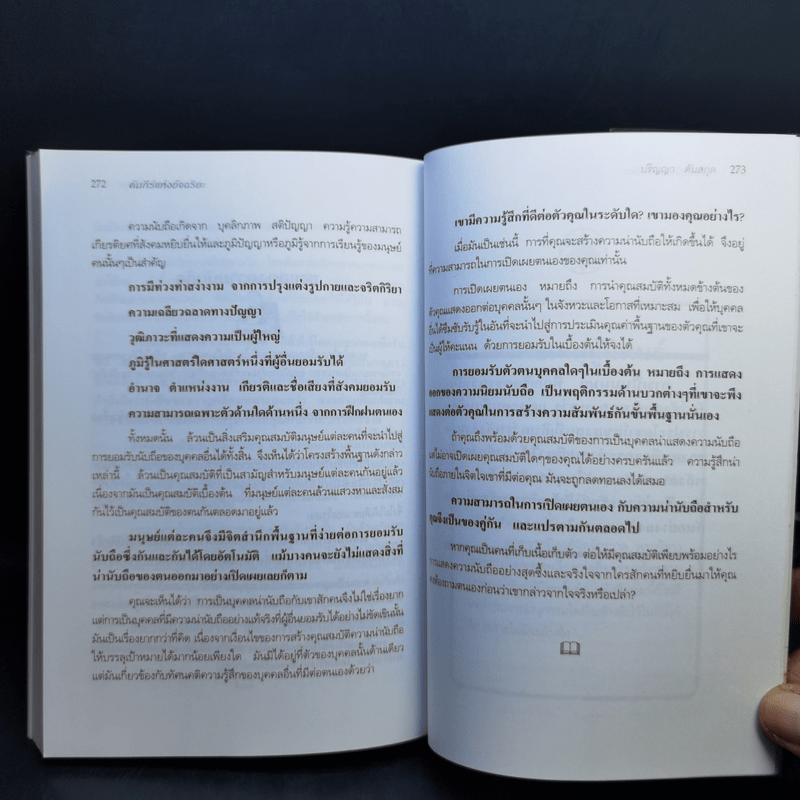 272 คัมภีร์แห่งอัจฉริยะ
ความนับถือเกิดจาก บุคลิกภาพ สติปัญญา ความรู้ความสามารถ
เกียรติยศที่สังคมหยิบยื่นให้และภูมิปัญญาหรือภูมิรู้จากการเรียนรู้ของมนุษย์
คนนั้นๆเป็นสำคัญ
การมีท่วงท่าสง่างาม จากการปรุงแต่งรูปกายและจริตกิริยา
ความเฉลียวฉลาดทางปัญญา
วุฒิภาวะที่แสดงความเป็นผู้ใหญ่
ภูมิรู้ในศาสตร์ใดศาสตร์หนึ่งที่ผู้อื่นยอมรับได้
อำนาจ ตำแหน่งงาน เกียรติและชื่อเสียงที่สังคมยอมรับ
ความสามารถเฉพาะตัวด้านใดด้านหนึ่ง จากการฝึกฝนตนเอง
ทั้งหมดนั้น ล้วนเป็นสิ่งเสริมคุณสมบัติมนุษย์แต่ละคนที่จะนำไปสู่
การยอมรับนับถือของบุคคลอื่นได้ทั้งสิ้น จึงเห็นได้ว่าโครงสร้างพื้นฐานดังกล่าว
เหล่านี้ ล้วนเป็นคุณสมบัติที่เป็นสามัญสำหรับมนุษย์แต่ละคนกันอยู่แล้ว
เนื่องจากมันเป็นคุณสมบัติเบื้องต้น ที่มนุษย์แต่ละคนล้วนแสวงหาและสั่งสม
กันไว้เป็นคุณสมบัติของตนกันตลอดมาอยู่แล้ว
มนุษย์แต่ละคนจึงมีจิตสำนึกพื้นฐานที่ง่ายต่อการยอมรับ
นับถือซึ่งกันและกันได้โดยอัตโนมัติ แม้บางคนจะยังไม่แสดงสิ่งที่
น่านับถือของตนออกมาอย่างเปิดเผยเลยก็ตาม
คุณจะเห็นได้ว่า การเป็นบุคคลน่านับถือกับเขาสักคนจึงไม่ใช่เรื่องยาก
แต่การเป็นบุคคลที่มีความน่านับถืออย่างแท้จริงที่ผู้อื่นยอมรับได้อย่างไม่ขัดเขินนั้น
มันเป็นเรื่องยากกว่าที่คิด เนื่องจากเงื่อนไขของการสร้างคุณสมบัติความน่านับถือ
ให้บรรลุเป้าหมายได้มากน้อยเพียงใด มันมิได้อยู่ที่ตัวของบุคคลนั้นด้านเดียว
แต่มันเกี่ยวข้องกับทัศนคติความรู้สึกของบุคคลอื่นที่มีต่อตนเองด้วยว่า
ปริญญา ตันสกุล 273
เขามีความรู้สึกที่ดีต่อตัวคุณในระดับใด? เขามองคุณอย่างไร?
เมื่อมันเป็นเช่นนี้ การที่คุณจะสร้างความน่านับถือให้เกิดขึ้นได้ จึงอยู่
ที่ความสามารถในการเปิดเผยตนเองของคุณเท่านั้น
การเปิดเผยตนเอง หมายถึง การนำคุณสมบัติทั้งหมดข้างต้นของ
ตัวคุณแสดงออกต่อบุคคลนั้นๆ ในจังหวะและโอกาสที่เหมาะสม เพื่อให้บุคคล
อื่นได้ซึมซับรับรู้ในอันที่จะนำไปสู่การประเมินคุณค่าพื้นฐานของตัวคุณที่เขาจะ
เป็นผู้ให้คะแนน ด้วยการยอมรับในเบื้องต้นให้จงได้
การยอมรับตัวตนบุคคลใดๆในเบื้องต้น หมายถึง การแสดง
ออกของความนิยมนับถือ เป็นพฤติกรรมด้านบวกต่างๆที่เขาจะพึง
แสดงต่อตัวคุณในการสร้างความสัมพันธ์กันขั้นพื้นฐานนั่นเอง
ถ้าคุณพร้อมด้วยคุณสมบัติของการเป็นบุคคลน่าแสดงความนับถือ
แต่ไม่อาจเปิดเผยคุณสมบัติใดๆของคุณได้อย่างครบครันแล้ว ความรู้สึกน่า
นับถือภายในจิตใจเขาที่มีต่อคุณ มันจะถูกลดทอนลงได้เสมอ
ความสามารถในการเปิดเผยตนเอง กับความน่านับถือสำหรับ
คุณจึงเป็นของคู่กัน และแปรตามกันตลอดไป
หากคุณเป็นคนที่เก็บเนื้อเก็บตัว ต่อให้มีคุณสมบัติเพียบพร้อมอย่างไร
การแสดงความนับถืออย่างสุดซึ้งและจริงใจจากใครสักคนที่หยิบยื่นมาให้คุณ
ต้องถามตนเองก่อนว่าเขากล่าวจากใจจริงหรือเปล่า?